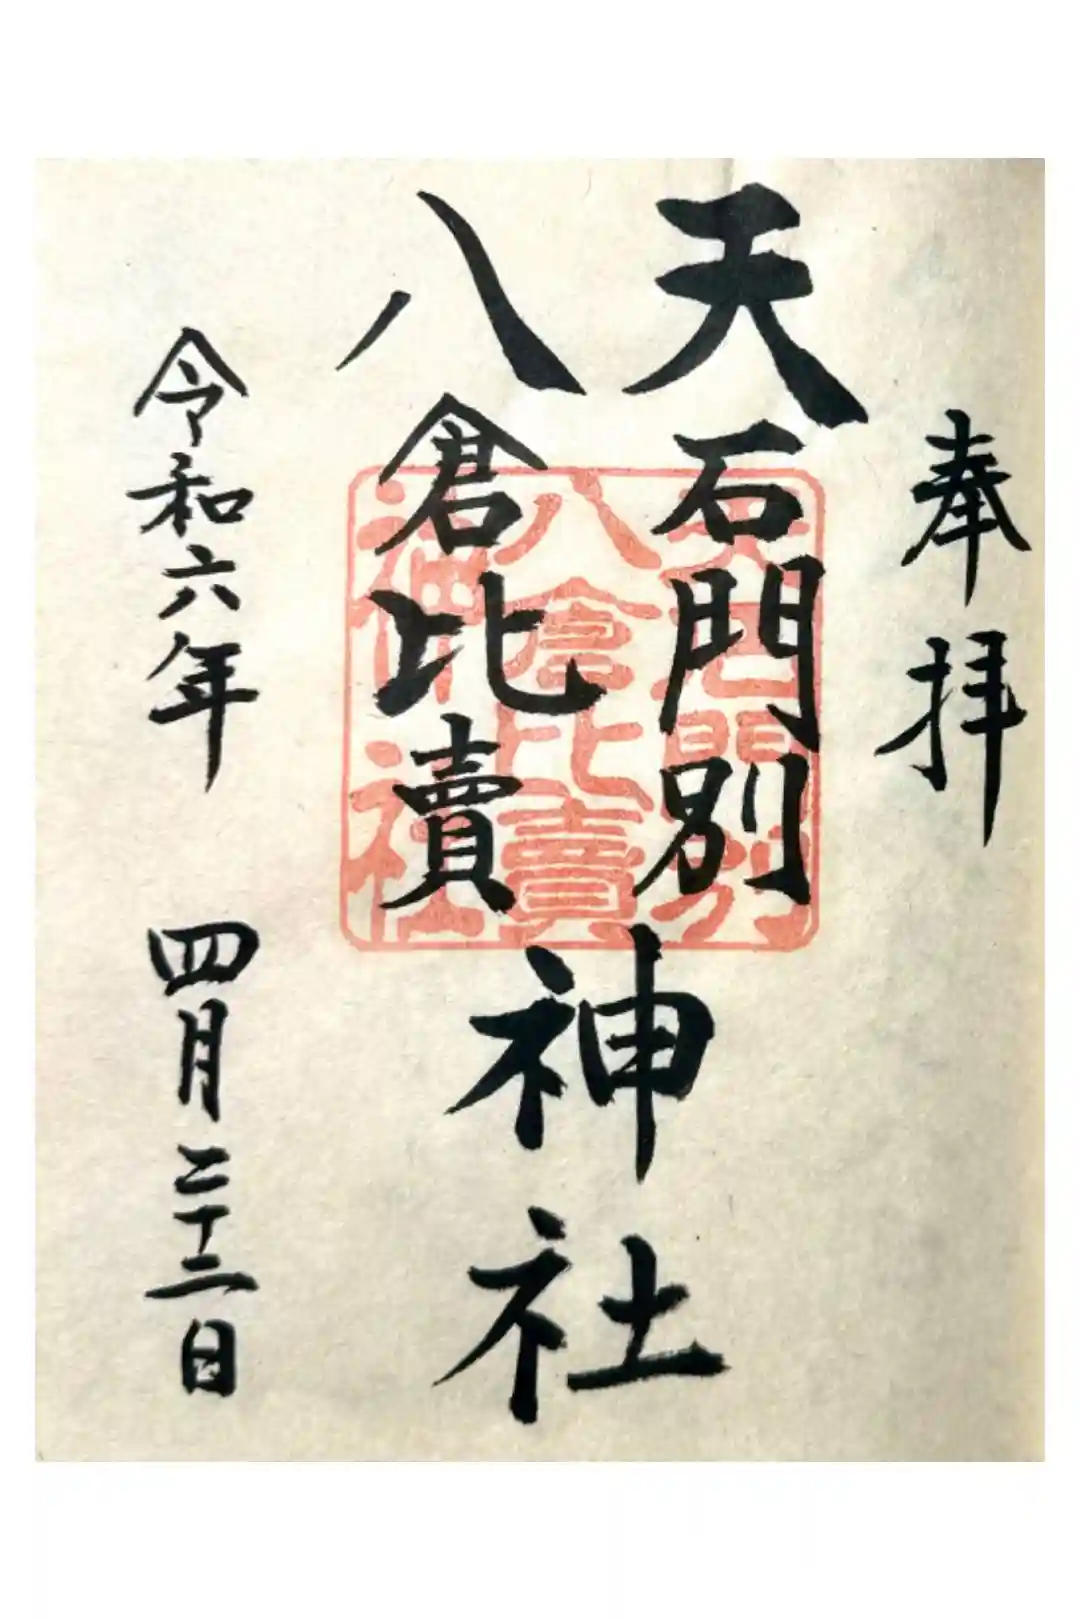 奉拝
天石門別
八倉比賣
神社
令和六年 四月二十二日
天石門別
八倉比賣
神社